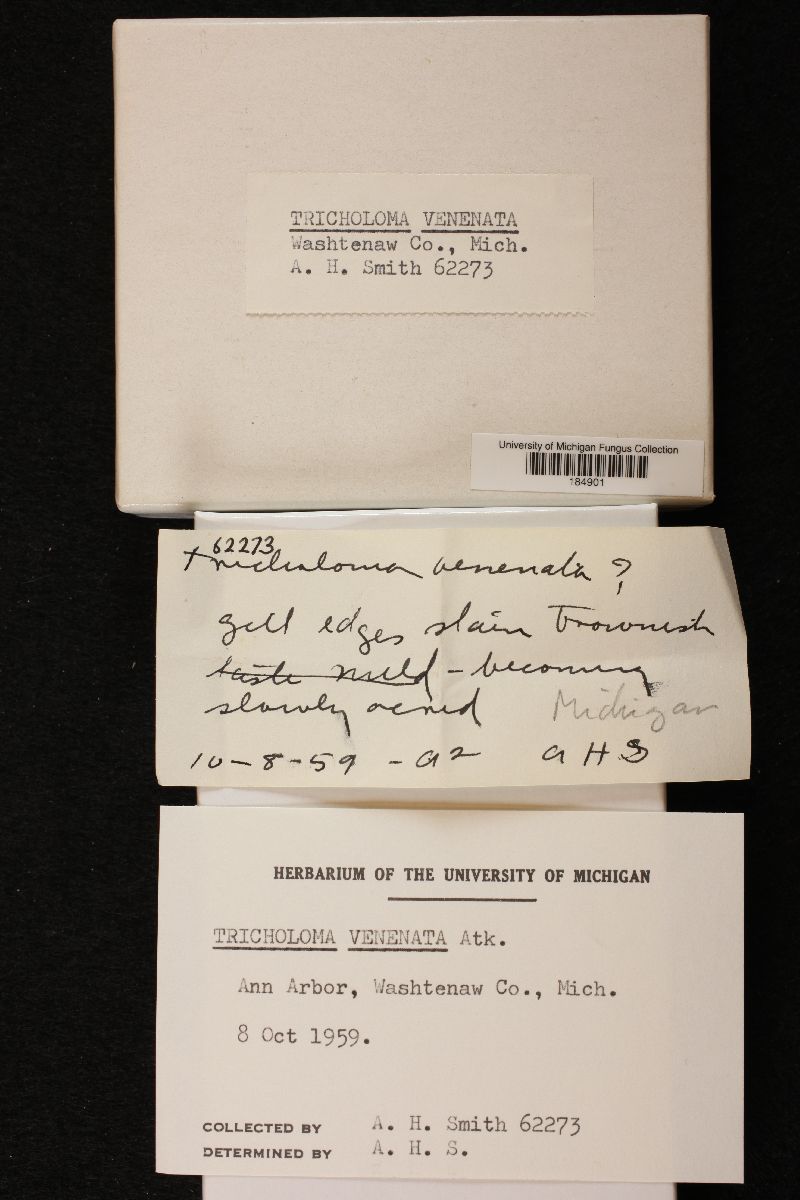 TRICHOLOMA VENENATA
Washtenaw Co., Mich.
A. H. Smith 62273
University of Michigan Fungus Collection
184901
62273
Tricholoma venenata ?
gill edges stain brownish
taste mild - becoming
slowly acrid Michigan
10-8-59 - A2 A H S
HERBARIUM OF THE UNIVERSITY OF MICHIGAN
TRICHOLOMA VENENATA Atk.
Ann Arbor, Washtenaw Co., Mich.
8 Oct 1959.
COLLECTED BY A. H. Smith 62273
DETERMINED BY A. H. S.